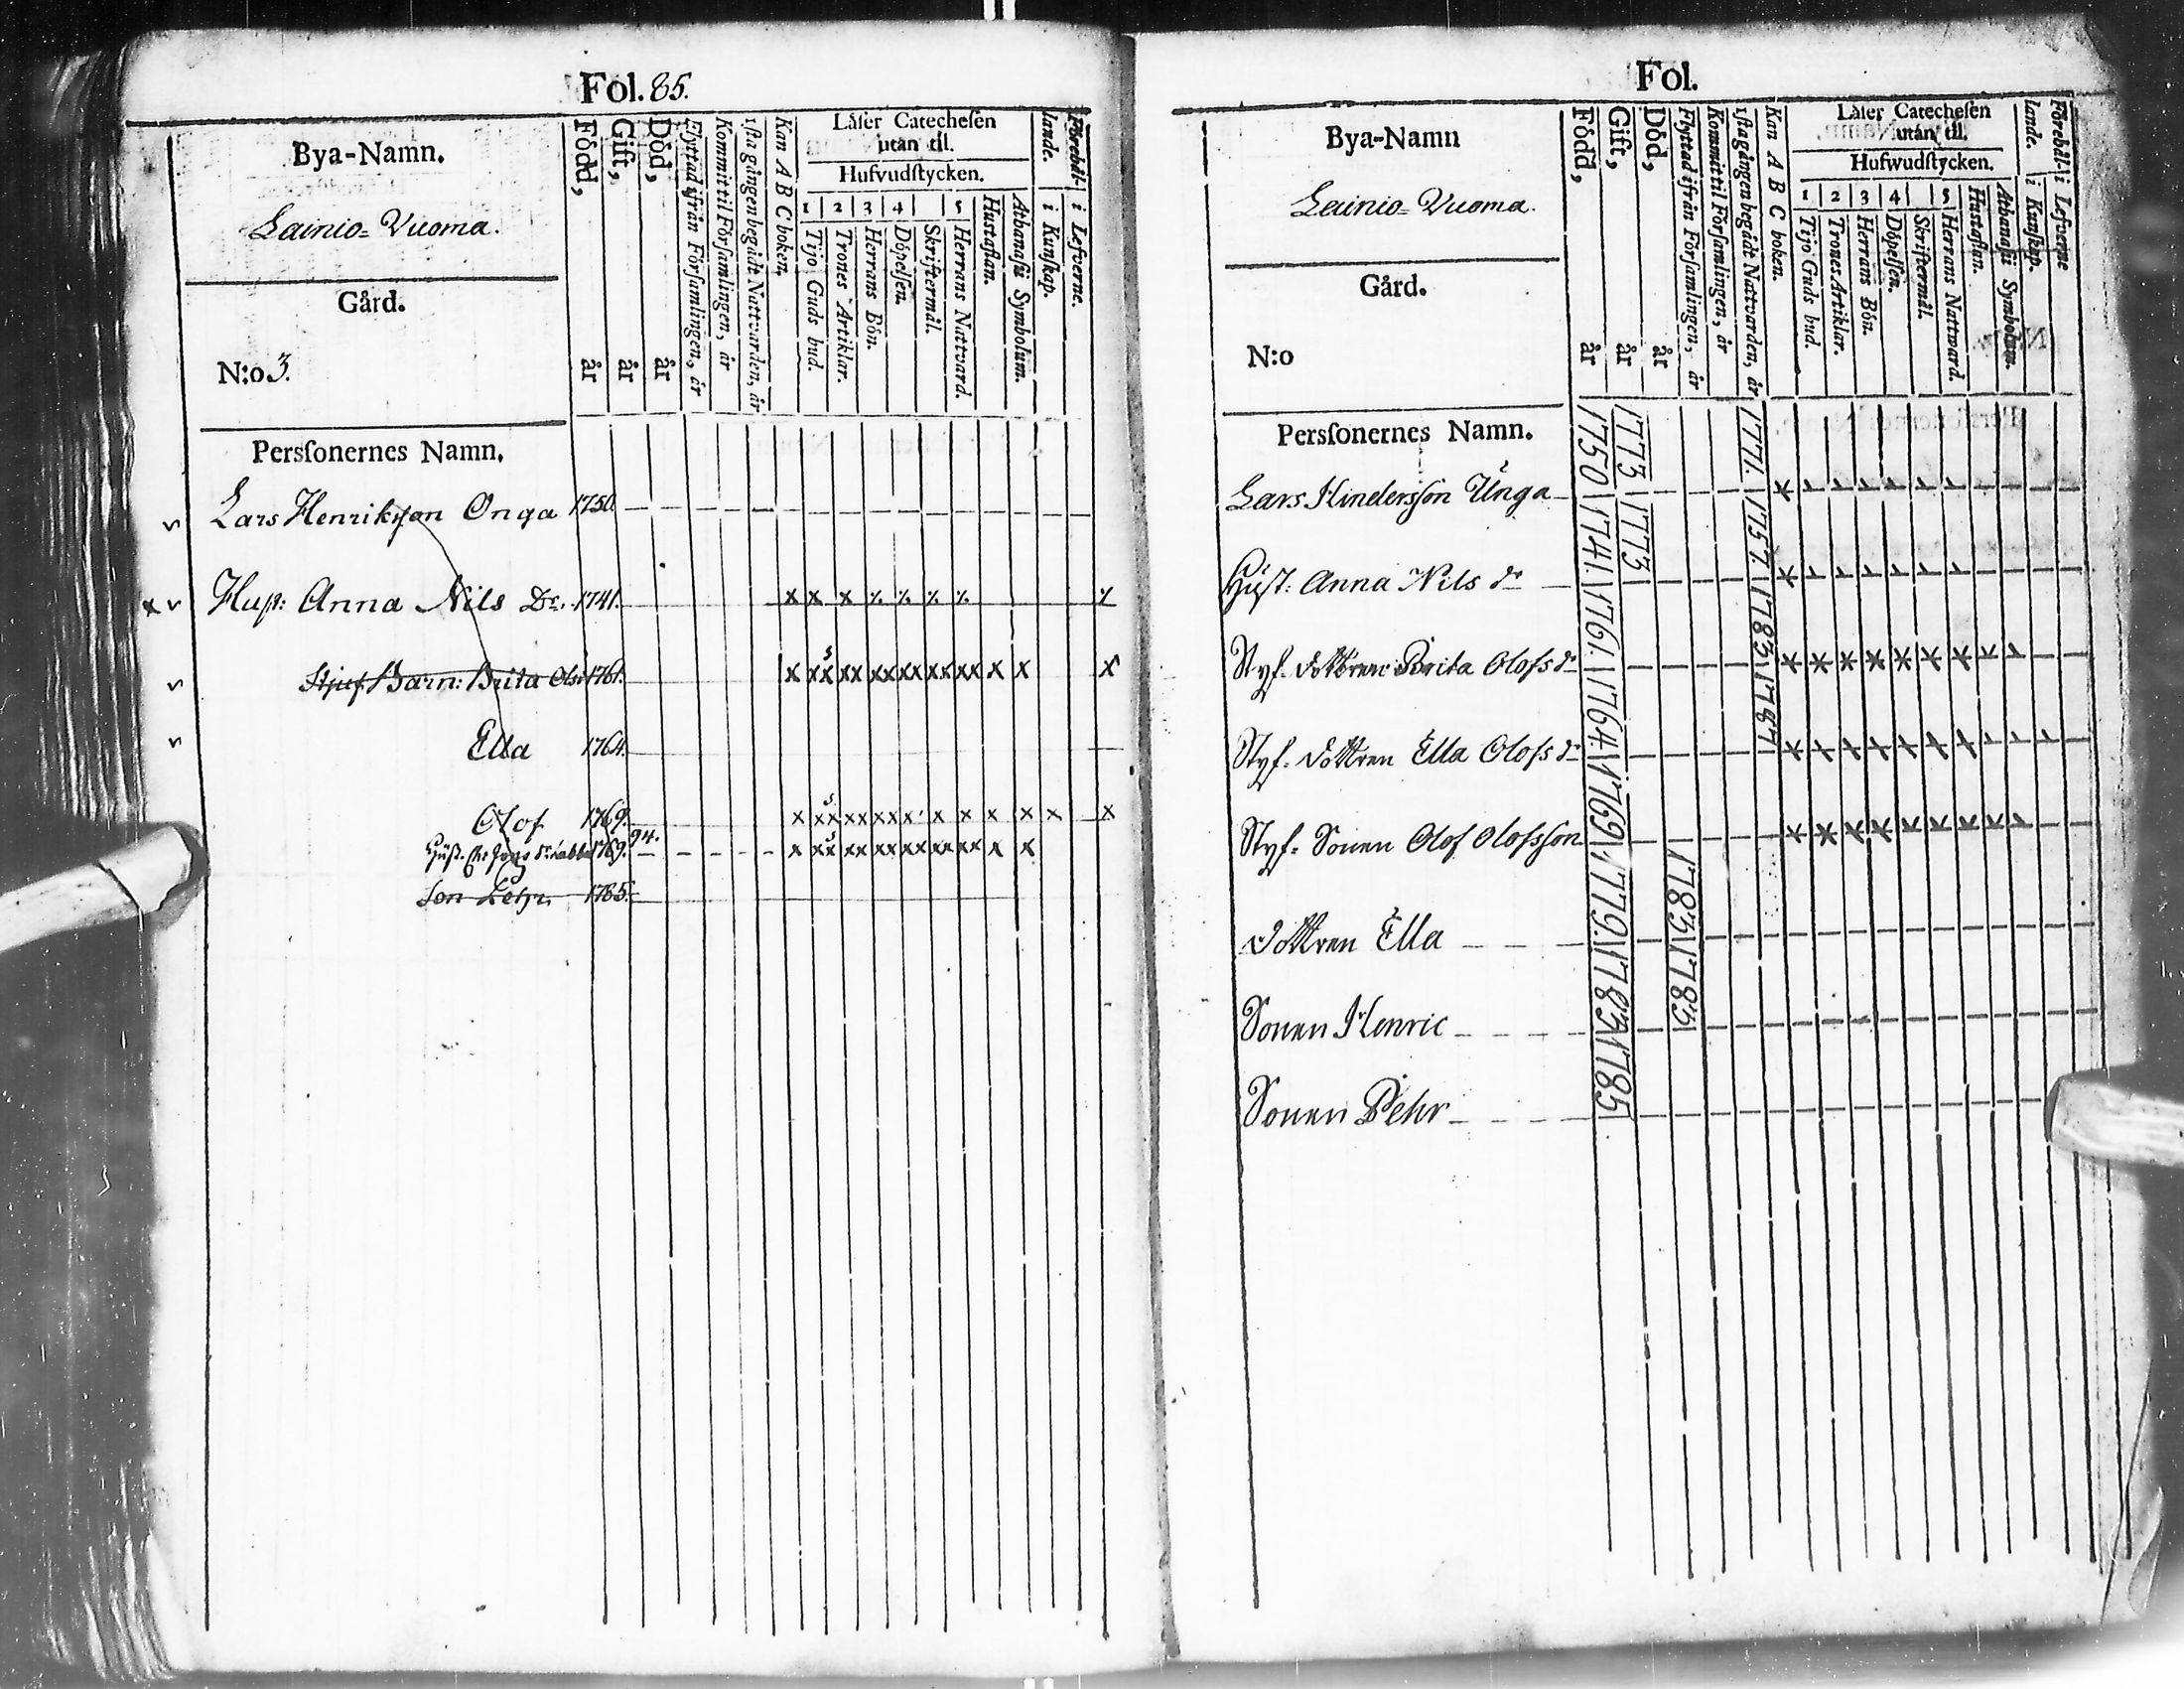 Fol. 85.
Bya-Namn.
Lainio-Vuoma.
Gård.
N:o 3.
Persſonernes Namn.
Född, år
Gift, år
Död, år
Flyttad ifrån Förſamlingen, år
Kommit til Förſamlingen, år
1ſta gången begådt Nattvarden, år
Kan A B C boken.
Läſer Catecheſen utan til.
Hufvudſtycken.
1 2 3 4 5
Tijo Guds bud.
Trones Artiklar.
Herrans Bön.
Döpelſen.
Skriftermål.
Herrans Nattvard.
Huſtaflan.
Athanaſii Symbolum.
Förehållande.
i Kunſkap.
i Lefverne.
v Lars Henriksson Onga 1750.
x v Hust: Anna Nils Dr. 1741. x x x ⁒ ⁒ ⁒ ⁒ ⁒
v Stjuf Barn: Brita Ols: 1761. x xx xx xx xx xx xx x x x
v Ella 1764.
Olof 1769. x xx xx xx x x x x x x x
1769. 94. x xx xx xx xx xx xx x x
Son Pehr. 1785.
Fol.
Bya-Namn
Lainio-Vuoma.
Gård.
N:o
Persſonernes Namn.
Född, år
Gift, år
Död, år
Flyttad ifrån Förſamlingen, år
Kommit til Förſamlingen, år
1ſta gången begådt Nattvarden, år
Kan A B C boken.
Läſer Catecheſen utan til.
Hufwudſtycken.
1 2 3 4 5
Tijo Guds bud.
Trones Artiklar.
Herrans Bön.
Döpelſen.
Skriftermål.
Herrans Nattward.
Huſtaflan.
Athanaſii Symbolum.
Förehållande.
i Kunſkap.
i Lefverne
Lars Hindersson Unga 1750 1773 1771.
Hust: Anna Nils dr 1741. 1773 1757.
Styf. dottren Brita Olofs dr 1761. 1783
Styf. dottren Ella Olofs dr 1764. 1787
Styf. Sonen Olof Olofsson 1769
Dottren Ella 1779. 1783
Sonen Henric 1783 1785
Sonen Pehr 1785